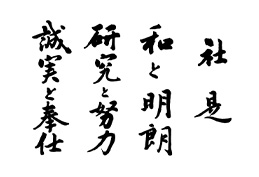 社是
和と明朗
研究と努力
誠実と奉仕